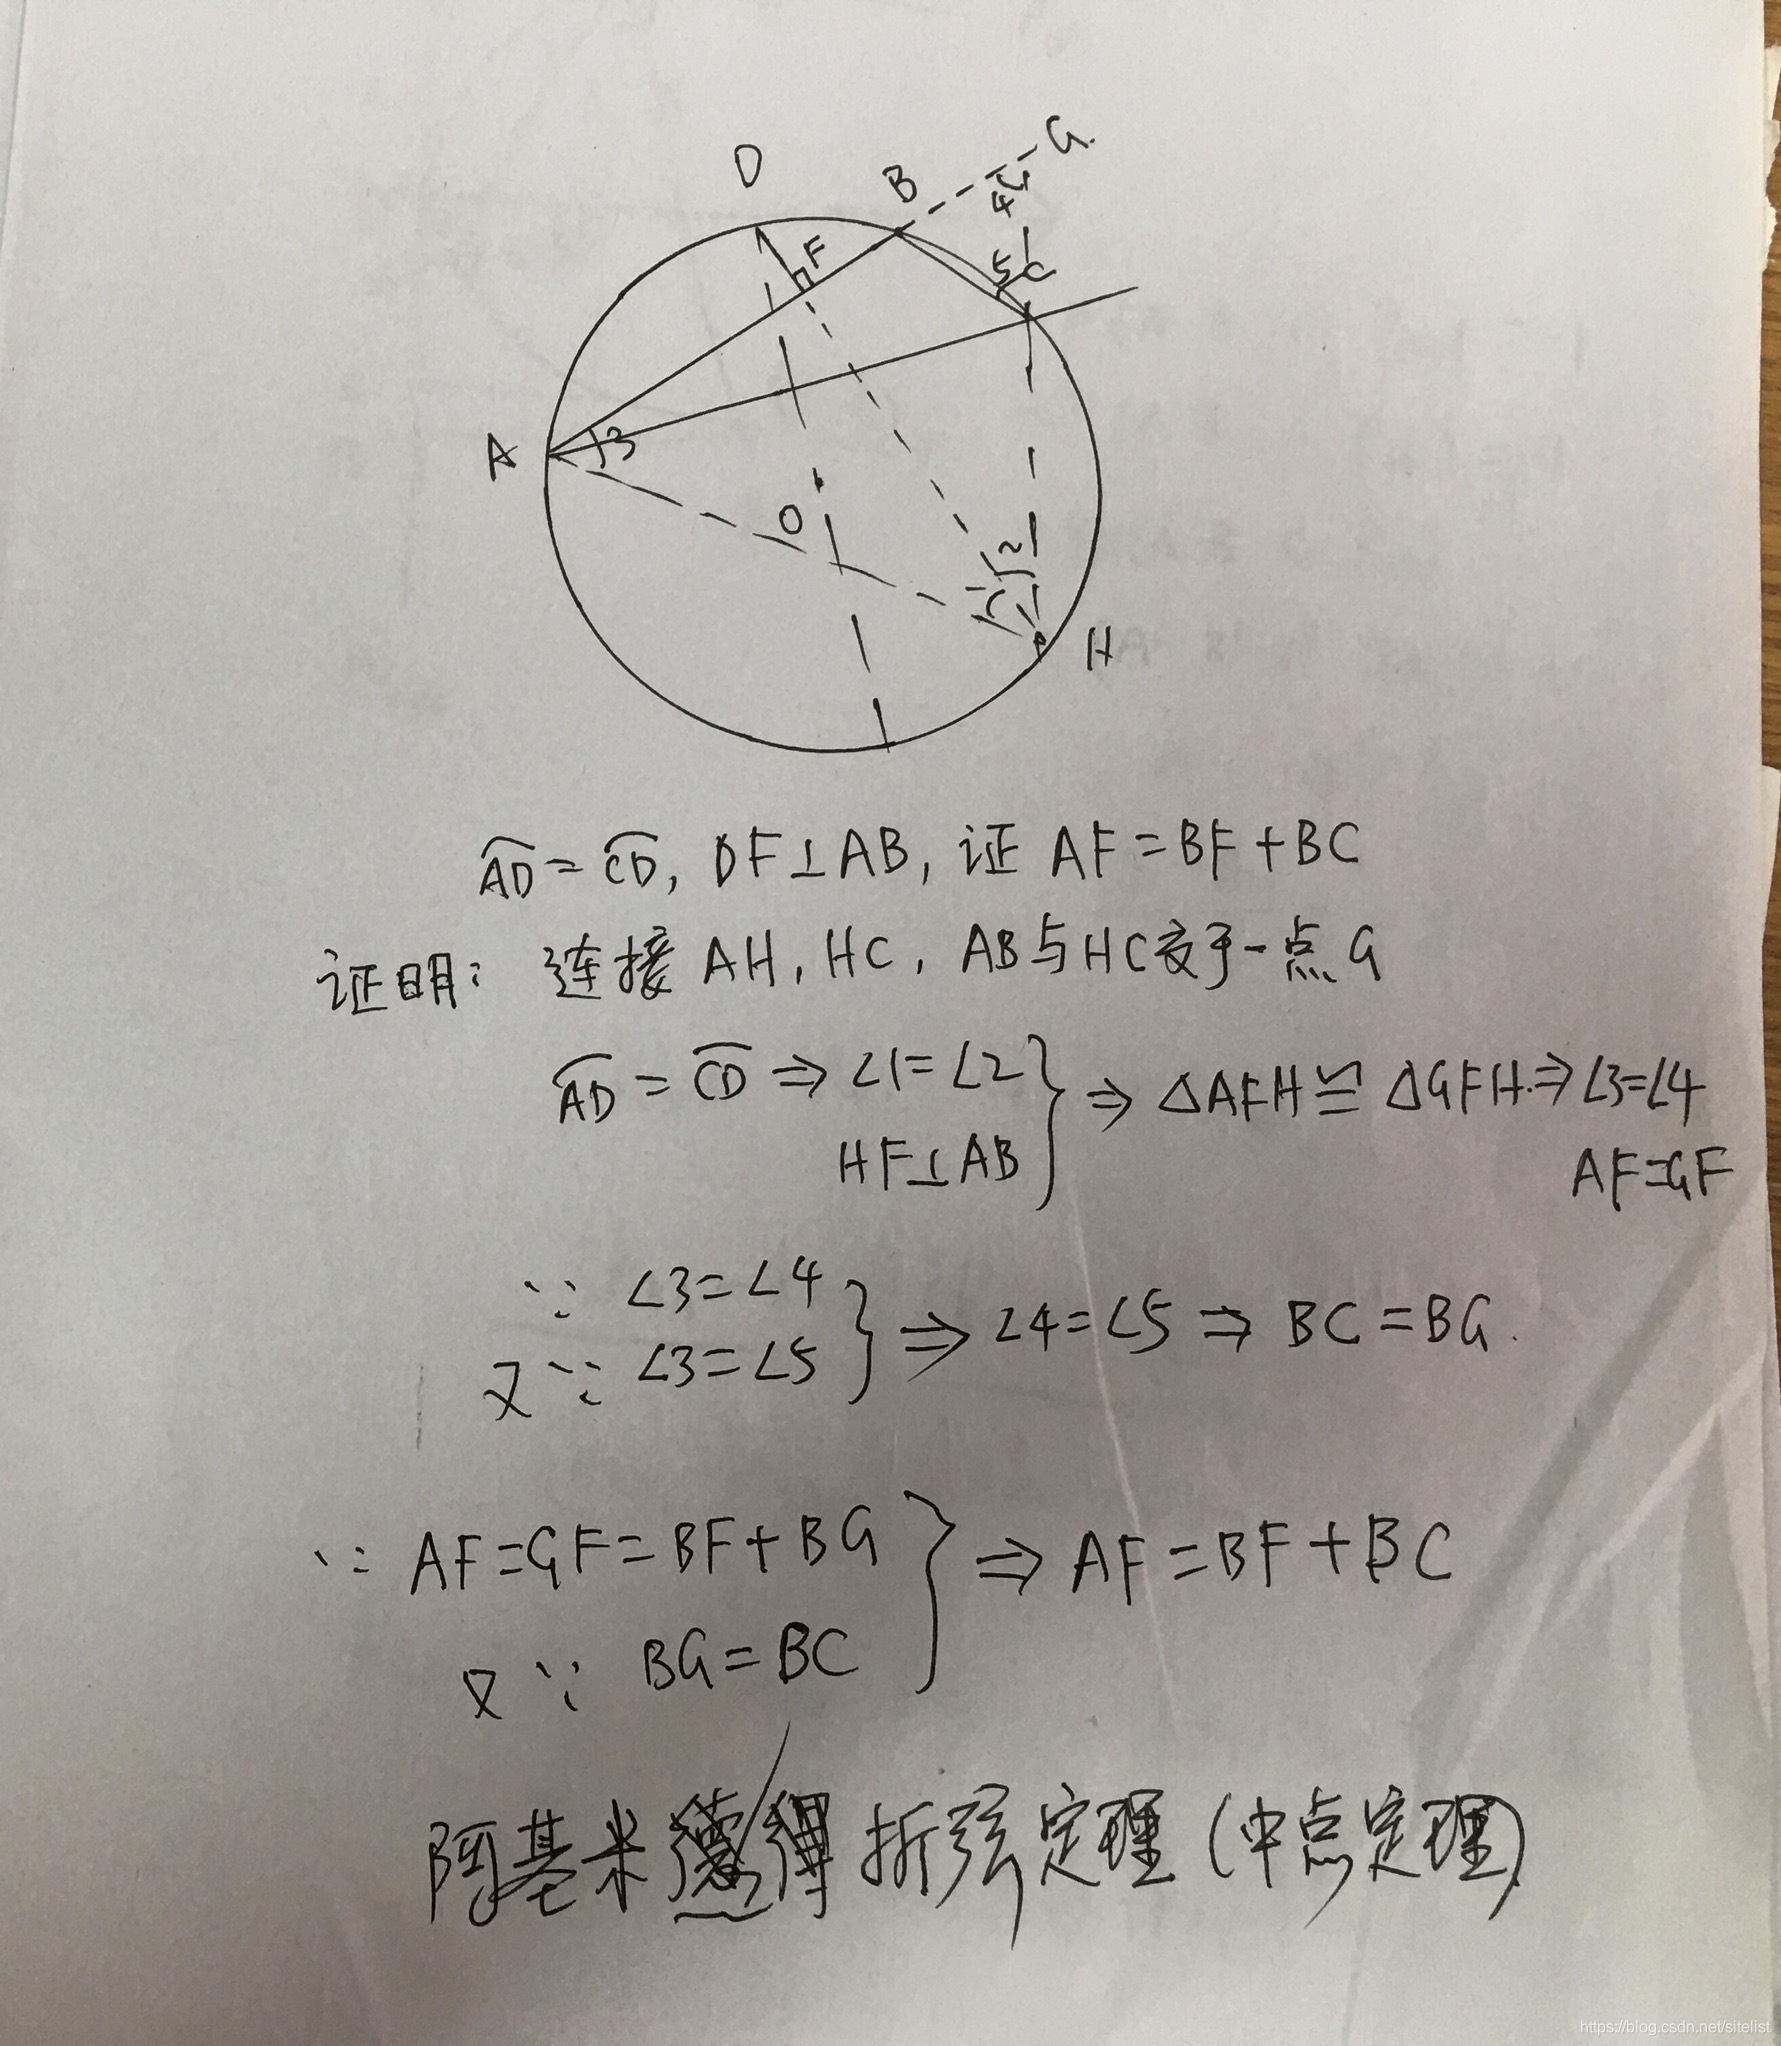 D
B
G.
4
F
5
C
1
A
3
O
2
1
H
A͡D=C͡D, DF⊥AB, 证 AF=BF+BC
证明: 连接AH, HC, AB与HC交于一点G
A͡D = C͡D ⇒ ∠1=∠2 } ⇒ △AFH≌△GFH.⇒∠3=∠4
HF⊥AB AF=GF
∵ ∠3=∠4
又∵ ∠3=∠5 } ⇒ ∠4=∠5 ⇒ BC=BG.
∵ AF=GF=BF+BG } ⇒ AF=BF+BC
又∵ BG=BC
阿基米得折弦定理(中点定理)
https://blog.csdn.net/sitelist